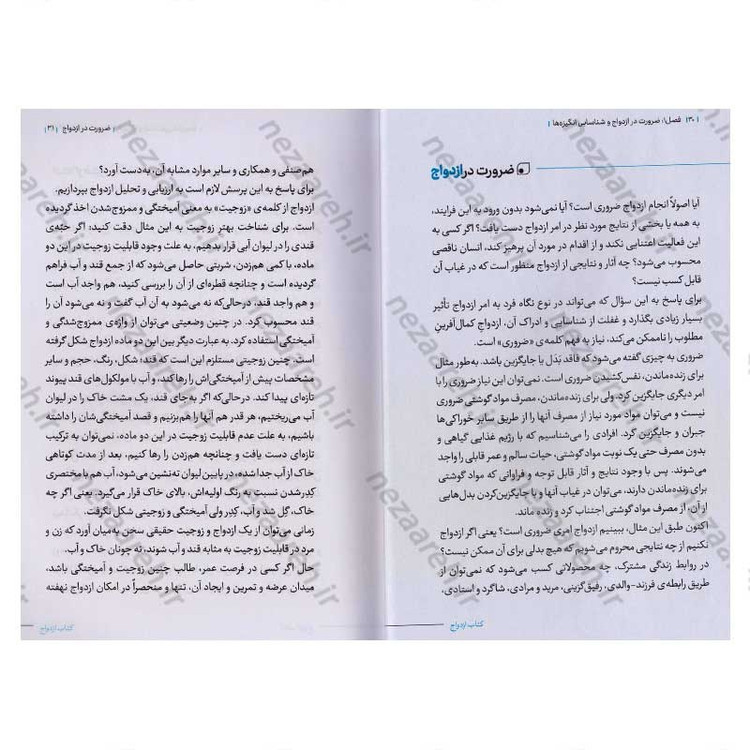 ۳۰ | فصل۱: ضرورت در ازدواج و شناسایی انگیزه‌ها |
ضرورت در ازدواج
آیا اصولاً انجام ازدواج ضروری است؟ آیا نمی‌شود بدون ورود به این فرایند،
به همه یا بخشی از نتایج مورد نظر در امر ازدواج دست یافت؟ اگر کسی به
این فعالیت اعتنایی نکند و از اقدام در مورد آن پرهیز کند، انسان ناقصی
محسوب می‌شود؟ چه آثار و نتایجی از ازدواج منظور است که در غیاب آن
قابل کسب نیست؟
برای پاسخ به این سؤال که می‌تواند در نوع نگاه فرد به امر ازدواج تأثیر
بسیار زیادی بگذارد و غفلت از شناسایی و ادراک آن، ازدواج کمال‌آفرینِ
مطلوب را ناممکن می‌کند، نیاز به فهم کلمه‌ی «ضروری» است.
ضروری به چیزی گفته می‌شود که فاقد بَدَل یا جایگزین باشد. به‌طور مثال
برای زنده‌ماندن، نفس‌کشیدن ضروری است. نمی‌توان این نیاز ضروری را با
امر دیگری جایگزین کرد. ولی برای زنده‌ماندن، مصرف مواد گوشتی ضروری
نیست و می‌توان مواد مورد نیاز از مصرف آنها را از طریق سایر خوراکی‌ها
جبران و جایگزین کرد. افرادی را می‌شناسیم که با رژیم غذایی گیاهی و
بدون مصرف حتی یک نوبت مواد گوشتی، حیات سالم و عمر قابلی را واجد
می‌شوند. پس با وجود نتایج و آثار قابل توجه و فراوانی که مواد گوشتی
برای زنده‌ماندن دارند، می‌توان در غیاب آنها و با جایگزین‌کردن بدل‌هایی
از آن، از مصرف مواد گوشتی اجتناب کرد و زنده ماند.
اکنون طبق این مثال، ببینیم ازدواج امری ضروری است؟ یعنی اگر ازدواج
نکنیم از چه نتایجی محروم می‌شویم که هیچ بدلی برای آن ممکن نیست؟
در روابط زندگی مشترک، چه محصولاتی کسب می‌شود که نمی‌توان از
طریق رابطه‌ی فرزند-والدی، رفیق‌گزینی، مرید و مرادی، شاگرد و استادی،
کتاب ازدواج
ضرورت در ازدواج | ۳۱
هم‌صنفی و همکاری و سایر موارد مشابه آن، به‌دست آورد؟
برای پاسخ به این پرسش لازم است به ارزیابی و تحلیل ازدواج بپردازیم.
ازدواج از کلمه‌ی «زوجیت» به معنی آمیختگی و ممزوج‌شدن اخذ گردیده
است. برای شناخت بهتر زوجیت به این مثال دقت کنید؛ اگر حبّه‌ی
قندی را در لیوان آبی قرار بدهیم، به علت وجود قابلیت زوجیت در این دو
ماده، با کمی هم‌زدن، شربتی حاصل می‌شود که از جمع قند و آب فراهم
گردیده است و چنانچه قطره‌ای از آن را بررسی کنید، هم واجد آب است
و هم واجد قند. درحالی‌که نه می‌شود به آن آب گفت و نه می‌شود آن را
قند محسوب کرد. در چنین وضعیتی می‌توان از واژه‌ی ممزوج‌شدگی و
آمیختگی استفاده کرد. به عبارت دیگر بین این دو ماده ازدواج شکل گرفته
است. چنین زوجیتی مستلزم این است که قند؛ شکل، رنگ، حجم و سایر
مشخصات پیش از آمیختگی‌اش را رها کند، و آب با مولکول‌های قند پیوند
تازه‌ای پیدا کند. درحالی‌که اگر به‌جای قند، یک مشت خاک را در لیوان
آب می‌ریختیم، هر قدر هم آنها را هم‌بزنیم و قصد آمیختگی‌شان را داشته
باشیم، به علت عدم قابلیت زوجیت در این دو ماده، نمی‌توان به ترکیب
تازه‌ای دست یافت و چنانچه هم‌زدن را رها کنیم، بعد از مدت کوتاهی
خاک از آب جدا شده، در پایین لیوان ته‌نشین می‌شود، آب هم با مختصری
کِدِرشدن نسبت به رنگ اولیه‌اش، بالای خاک قرار می‌گیرد. یعنی اگر چه
خاک، گِل شد و آب، کِدِر ولی آمیختگی و زوجیتی شکل نگرفت.
زمانی می‌توان از یک ازدواج و زوجیت حقیقی سخن به‌میان آورد که زن و
مرد در قابلیت زوجیت به مثابه قند و آب شوند، نه چونان خاک و آب.
حال اگر کسی در فرصت عمر، طالب چنین زوجیت و آمیختگی باشد،
میدان عرضه و تمرین و ایجاد آن، تنها و منحصراً در امکان ازدواج نهفته
کتاب ازدواج
nezaareh.ir